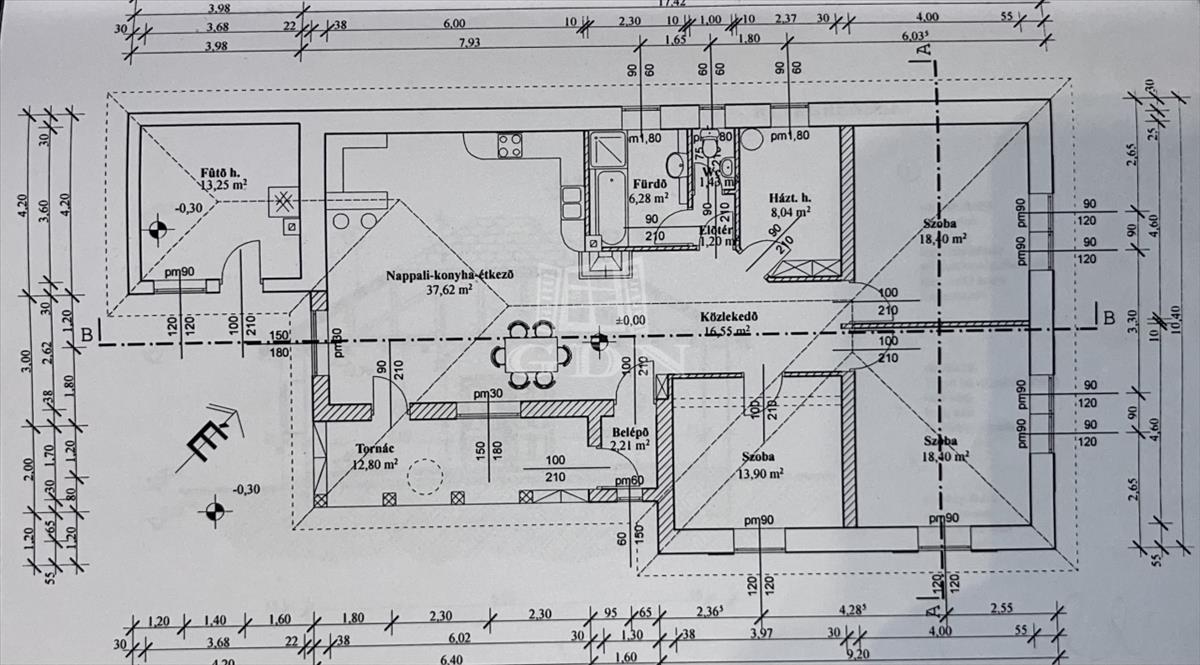 3,98
17,42
30
3,68
22
38
6,00
10
2,30
10
1,00
10
2,37
30
4,00
55
3,98
7,93
1,65
1,80
6,03⁵
A
90
60
60
60
90
60
Fűtő h.
13,25 m²
-0,30
pm90
120
120
100
210
pm1,80
Fürdő
6,28 m²
90
210
75
210
1,43 m²
90
210
Előtér
1,20 m²
Házt. h.
8,04 m²
90
210
Szoba
18,40 m²
pm90
90
120
pm90
90
120
Nappali-konyha-étkező
37,62 m²
±0,00
Közlekedő
16,55 m²
100
210
100
210
GDN
B
B
150
180
pm30
90
210
pm30
150
180
100
210
Belépő
2,21 m²
100
210
pm60
60
150
Tornác
12,80 m²
100
210
Szoba
13,90 m²
pm90
120
120
Szoba
18,40 m²
pm90
90
120
pm90
90
120
pm90
120
120
A
É
-0,30
4,20
3,00
2,00
1,20
30
3,60
30
2,62
38
1,70
30
65
55
4,20
1,20
1,80
1,20
80
1,20
30
25
2,65
90
3,30
90
2,65
4,60
10
4,60
55
10,40
1,20
1,40
1,60
1,80
2,30
2,30
95
65
2,36⁵
4,28⁵
2,55
30
3,68
22
38
6,02
30
1,30
38
3,97
30
4,00
55
4,20
6,40
1,60
9,20